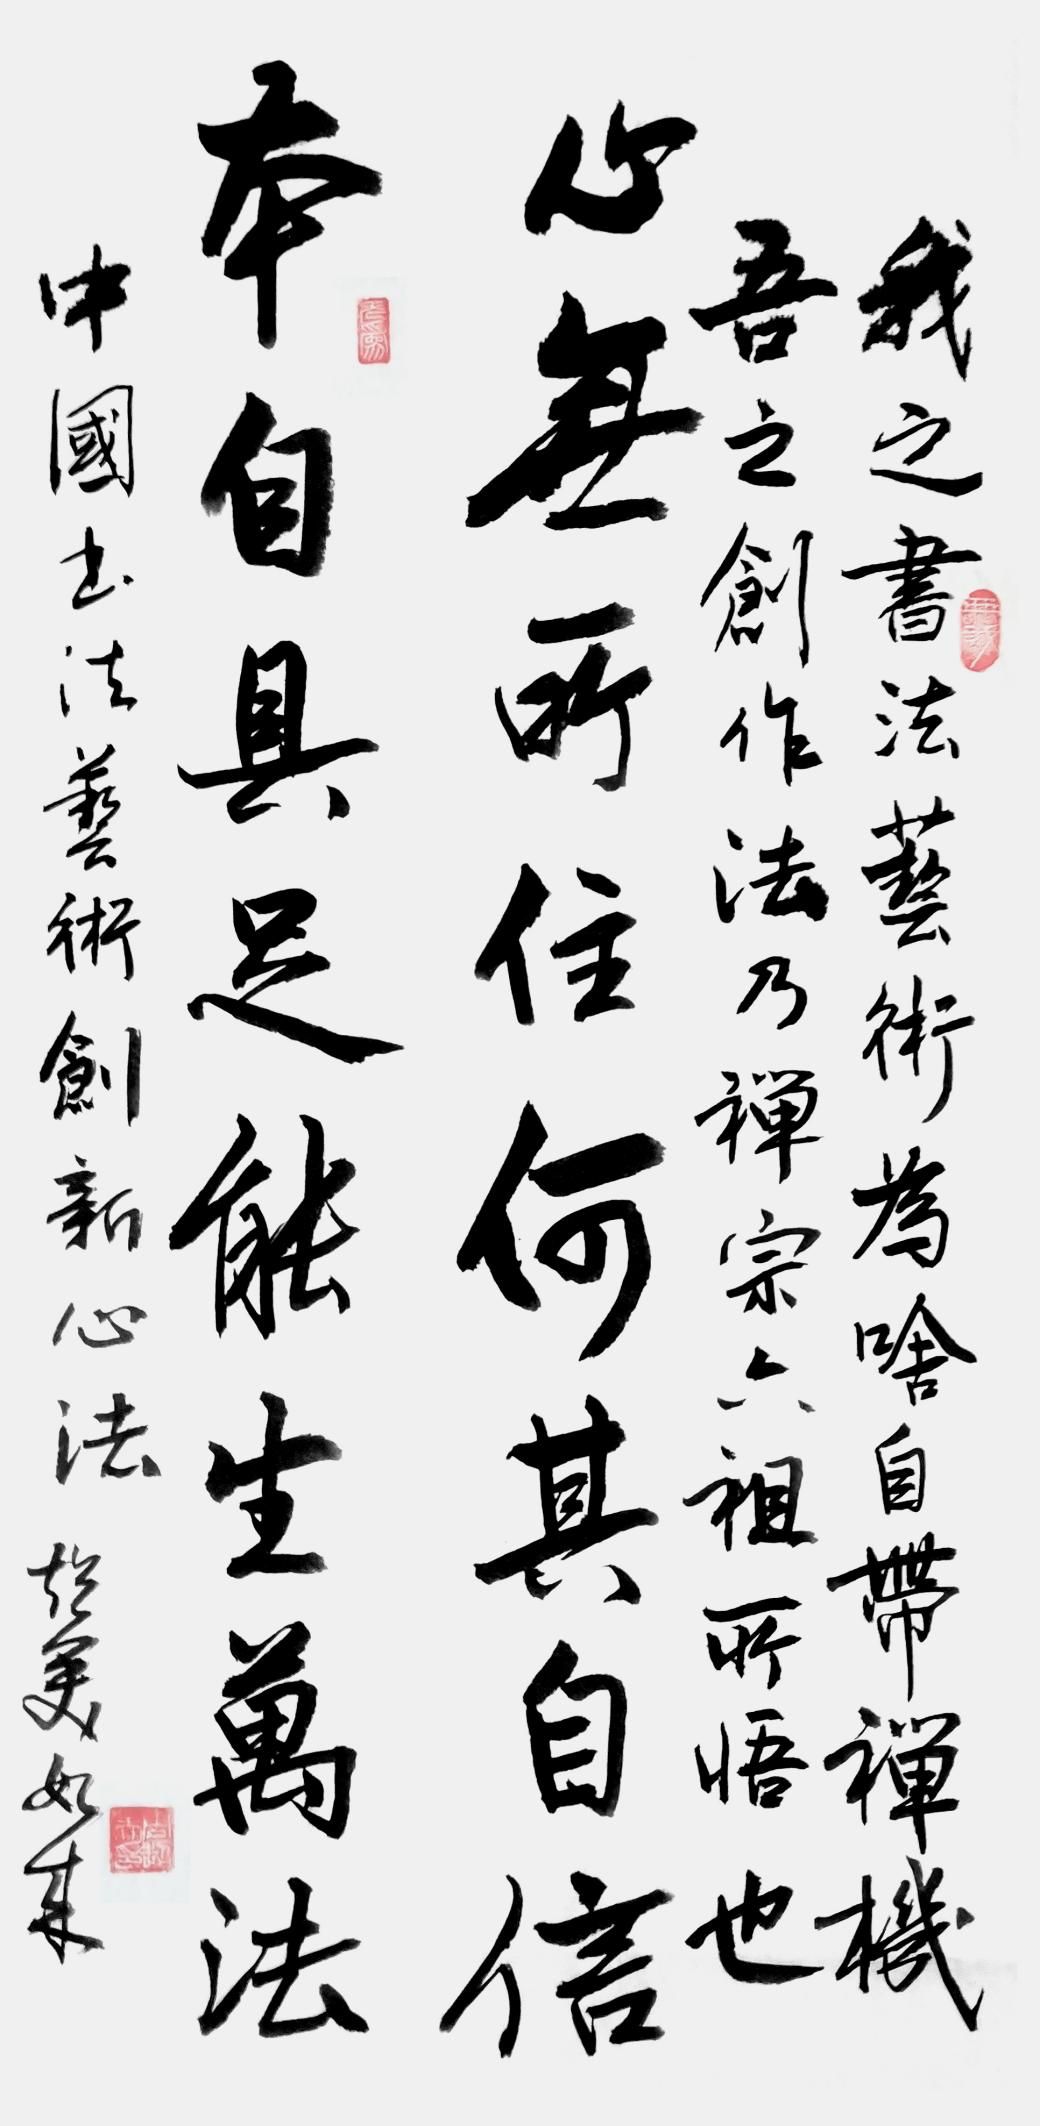 我之書法藝術為啥自帶禪機
吾之創作法乃禪宗六祖所悟也
心無所住何其自信
本自具足能生萬法
中國书法藝術創新心法 超美如来